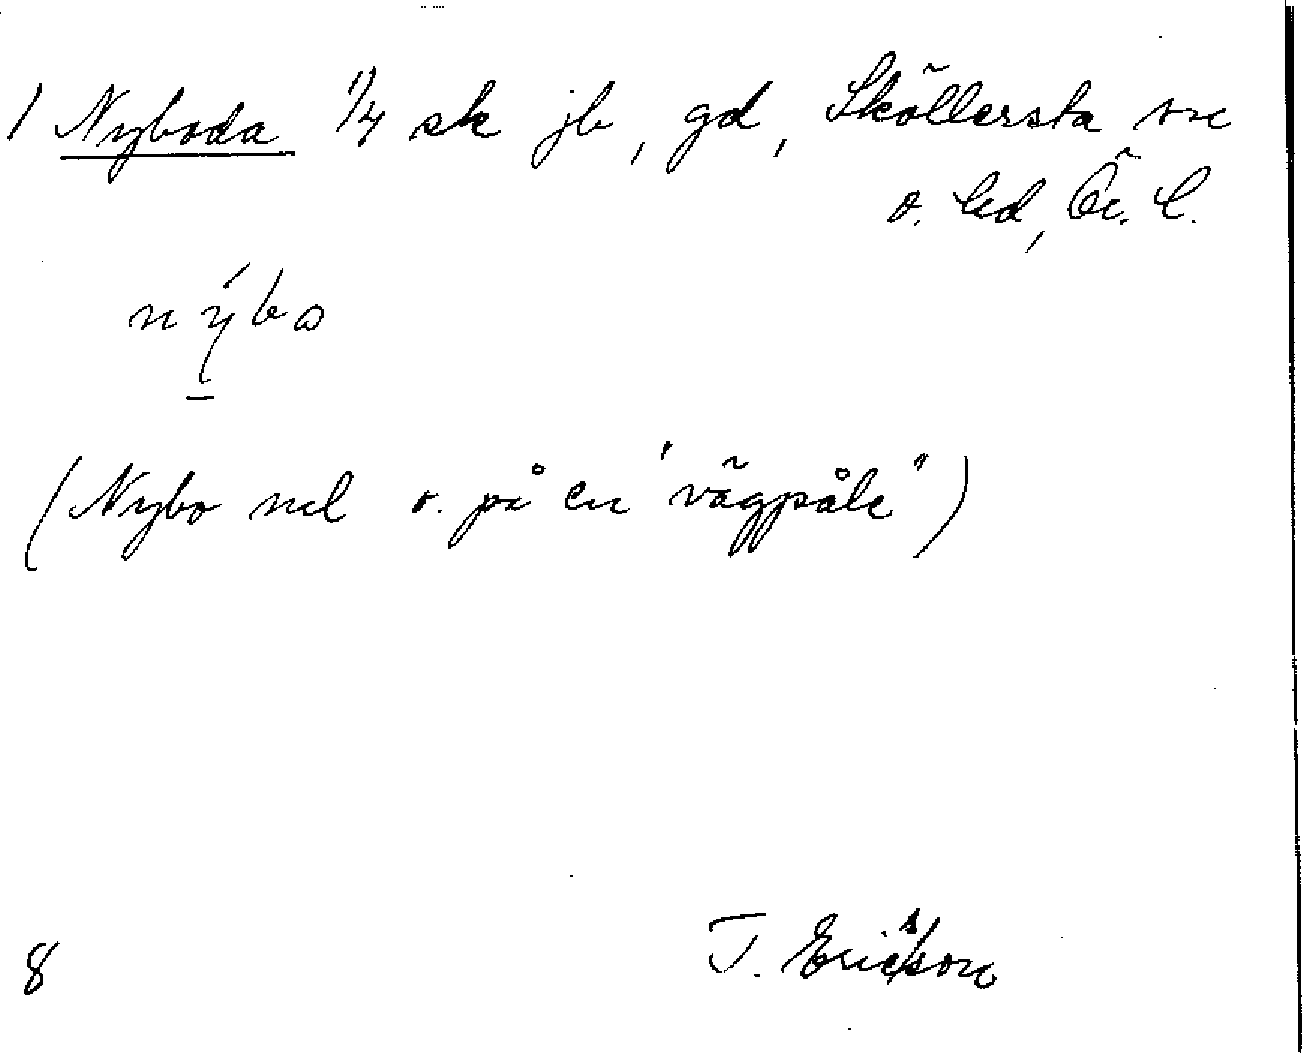 1 Nyboda 1/4 sk jb, gd, Sköllersta sn
o. hd, Ör. l.
nýbo
(Nybo nel o. på en "vägpåle")
8
T. Ericsson